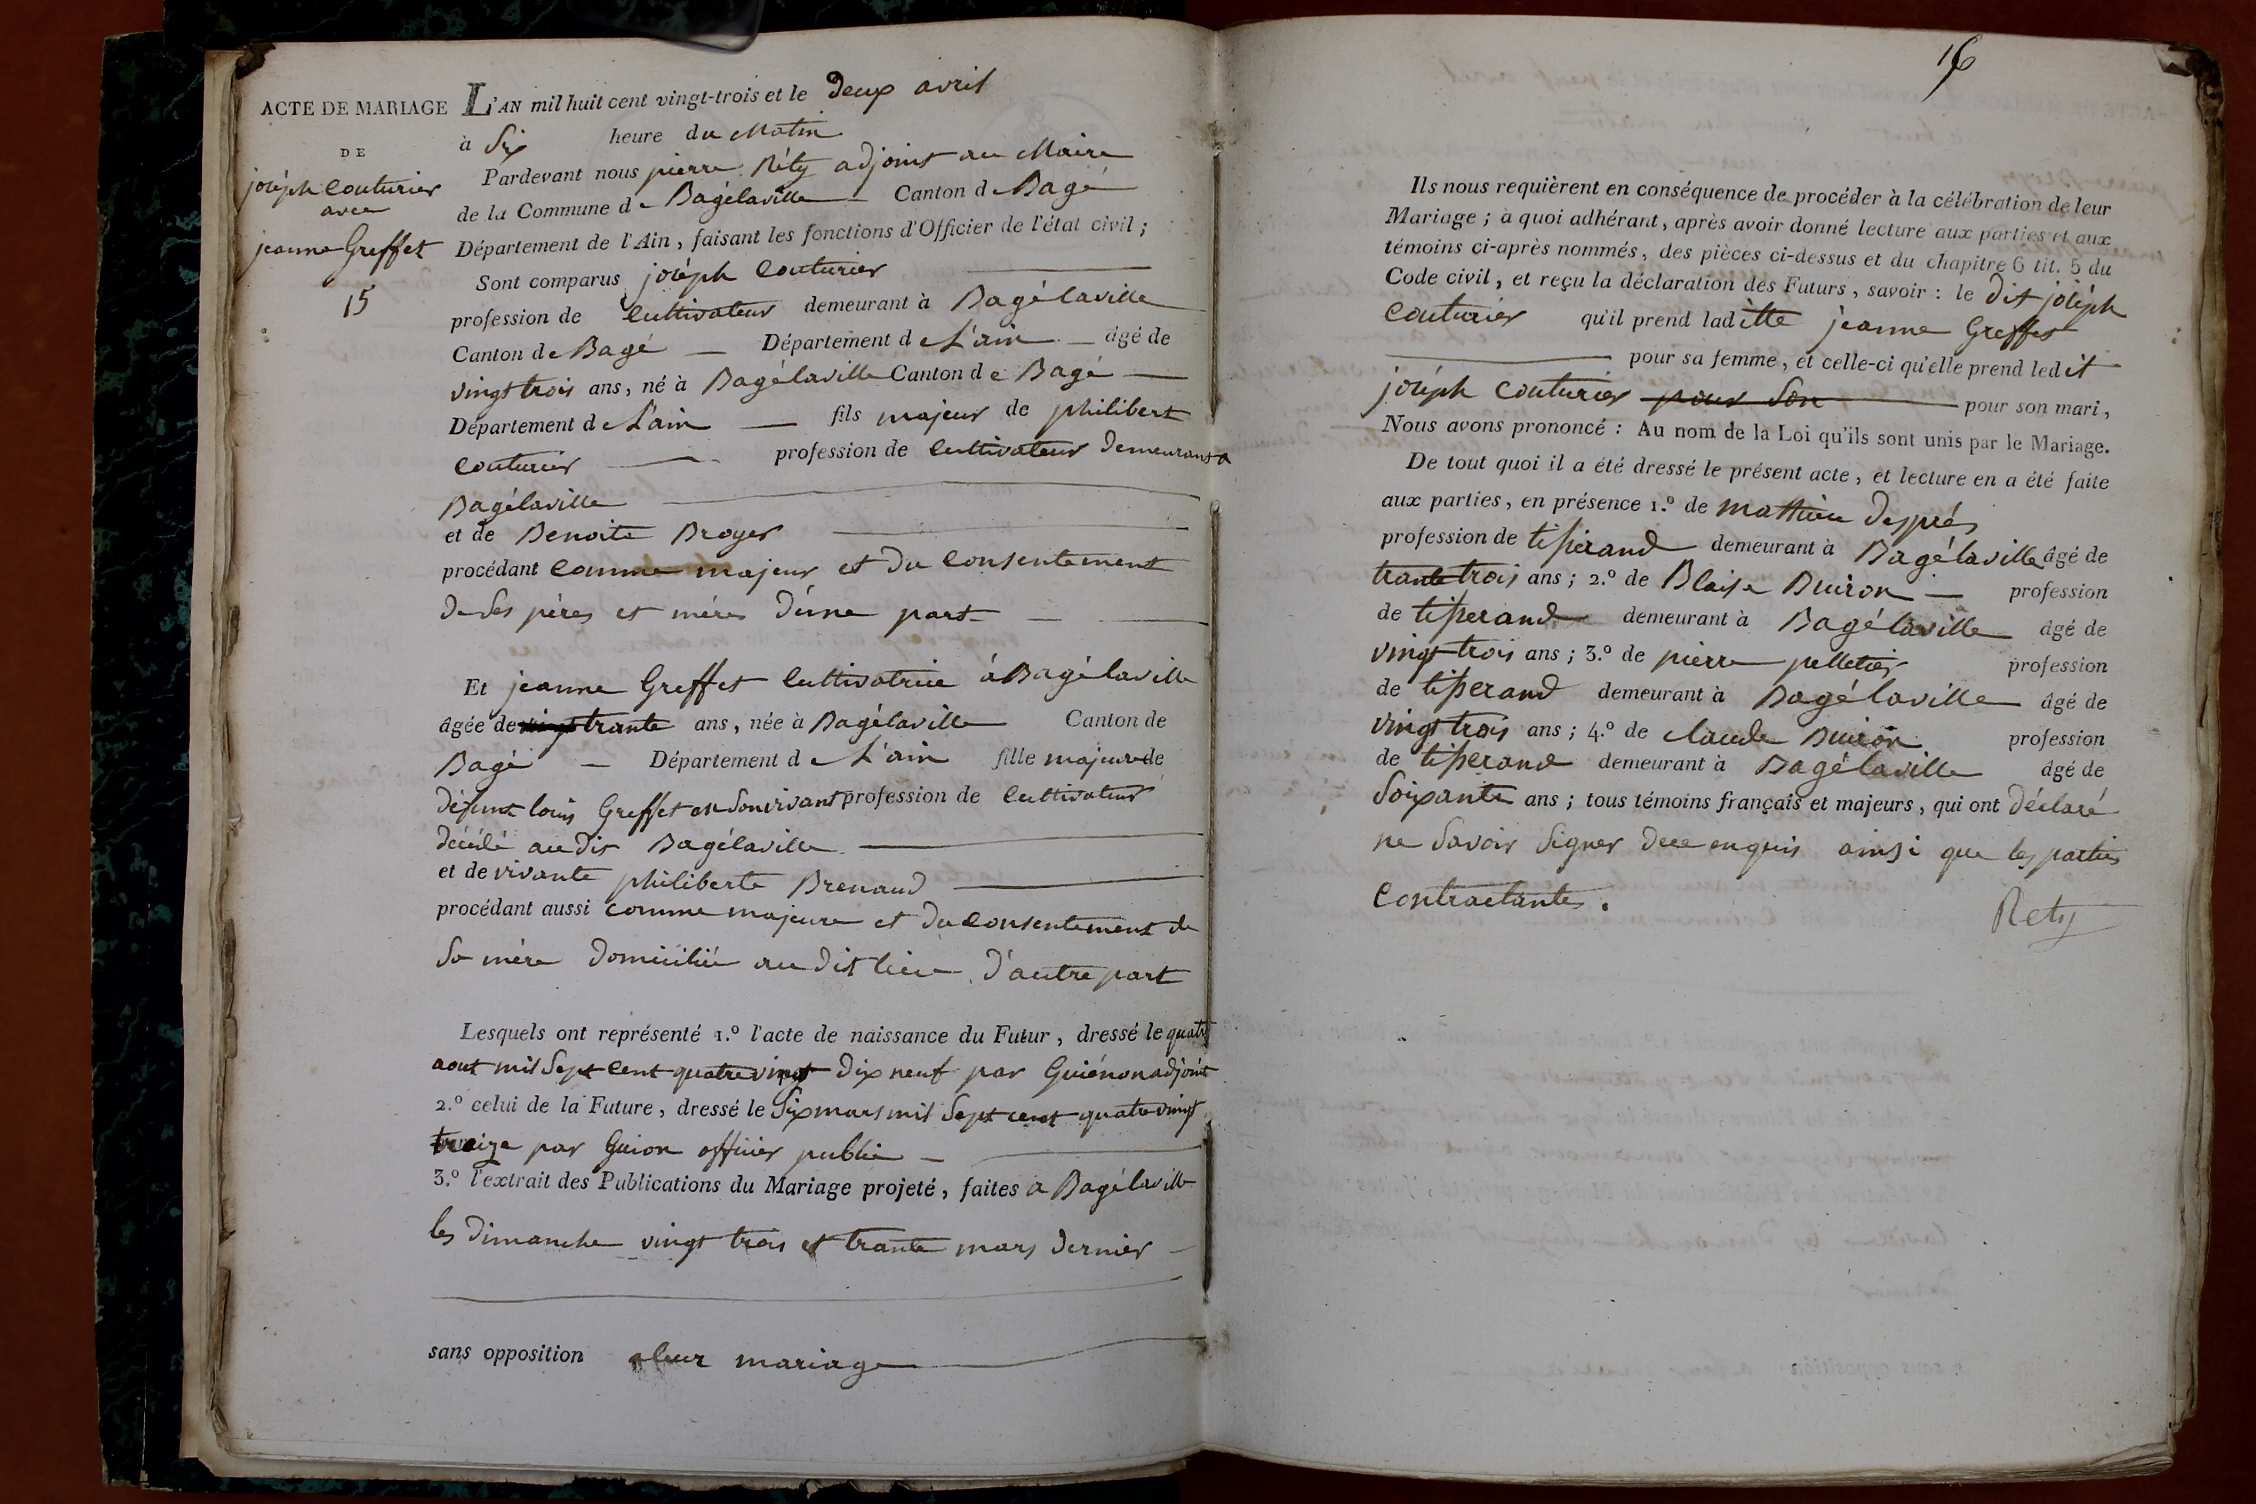 ACTE DE MARIAGE
DE
joséph Couturier
avec
jeanne Greffet
15
L'AN mil huit cent vingt-trois et le deux avril
à Six heure du Matin
Pardevant nous pierre Réty adjoint au Maire
de la Commune de Bagélaville Canton de Bagé
Département de l'Ain, faisant les fonctions d'Officier de l'état civil;
Sont comparus joséph Couturier
profession de Cultivateur demeurant à Bagélaville
Canton de Bagé Département de L'ain âgé de
vingt trois ans, né à Bagélaville Canton de Bagé
Département de L'ain fils majeur de philibert
Couturier profession de Cultivateur demeurant a
Bagélaville
et de Benoite Broyer
procédant Comme majeur et du Consentement
de Ses pères et mères d'une part
Et jeanne Greffet Cultivatrice à Bagélaville
âgée de trante ans, née à Bagélaville Canton de
Bagé Département de L'ain fille majeure de
défunt louis Greffet en Son vivant profession de Cultivateur
décédé au dit Bagélaville
et de vivante philiberte Brenaud
procédant aussi Comme majeure et du Consentement de
Sa mère domiciliée au dit lieu d'autre part
Lesquels ont représenté 1.º l'acte de naissance du Futur, dressé le quatre
aout mil Sept Cent quatre vingt dix neuf par Guiénon adjoint
2.º celui de la Future, dressé le Six mars mil Sept cent quatre vingt
treize par Guion officier public
3.º l'extrait des Publications du Mariage projeté, faites a Bagélaville
les dimanche vingt trois et trante mars dernier
sans opposition a leur mariage
16
Ils nous requièrent en conséquence de procéder à la célébration de leur
Mariage; à quoi adhérant, après avoir donné lecture aux parties et aux
témoins ci-après nommés, des pièces ci-dessus et du chapitre 6 tit. 5 du
Code civil, et reçu la déclaration des Futurs, savoir: le dit joséph
Couturier qu'il prend ladite jeanne Greffet
pour sa femme, et celle-ci qu'elle prend ledit
joséph Couturier pour Son pour son mari,
Nous avons prononcé: Au nom de la Loi qu'ils sont unis par le Mariage.
De tout quoi il a été dressé le présent acte, et lecture en a été faite
aux parties, en présence 1.º de mathieu després
profession de tisserand demeurant à Bagélaville âgé de
trante trois ans; 2.º de Blaise Buiron profession
de tisserand demeurant à Bagélaville âgé de
vingt trois ans; 3.º de pierre pelletier profession
de tisserand demeurant à Bagélaville âgé de
vingt trois ans; 4.º de claude Buiron profession
de tisserand demeurant à Bagélaville âgé de
Soixante ans; tous témoins français et majeurs, qui ont déclaré
ne Savoir Signer enquis ainsi que les parties
Contractantes.
Rety